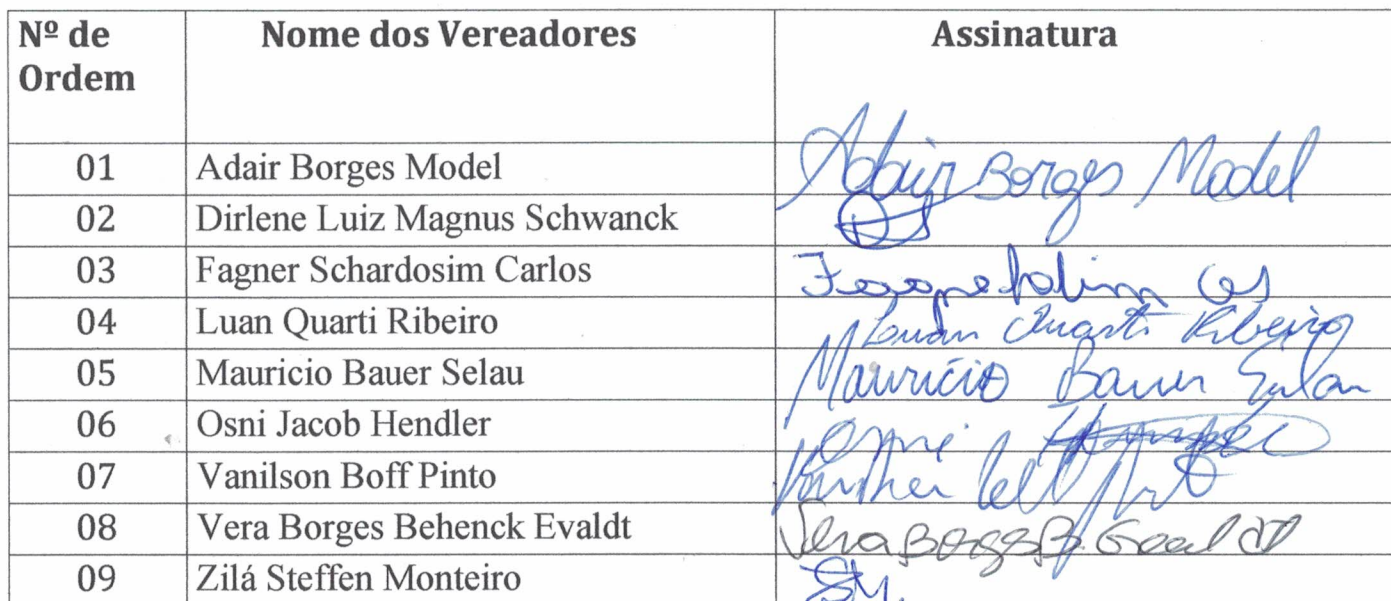 Nº de Ordem Nome dos Vereadores Assinatura
01 Adair Borges Model Adair Borges Model
02 Dirlene Luiz Magnus Schwanck
03 Fagner Schardosim Carlos
04 Luan Quarti Ribeiro Luan Quarti Ribeiro
05 Mauricio Bauer Selau Mauricio Bauer Selau
06 Osni Jacob Hendler Osni
07 Vanilson Boff Pinto
08 Vera Borges Behenck Evaldt Vera Borges B. Evaldt
09 Zilá Steffen Monteiro